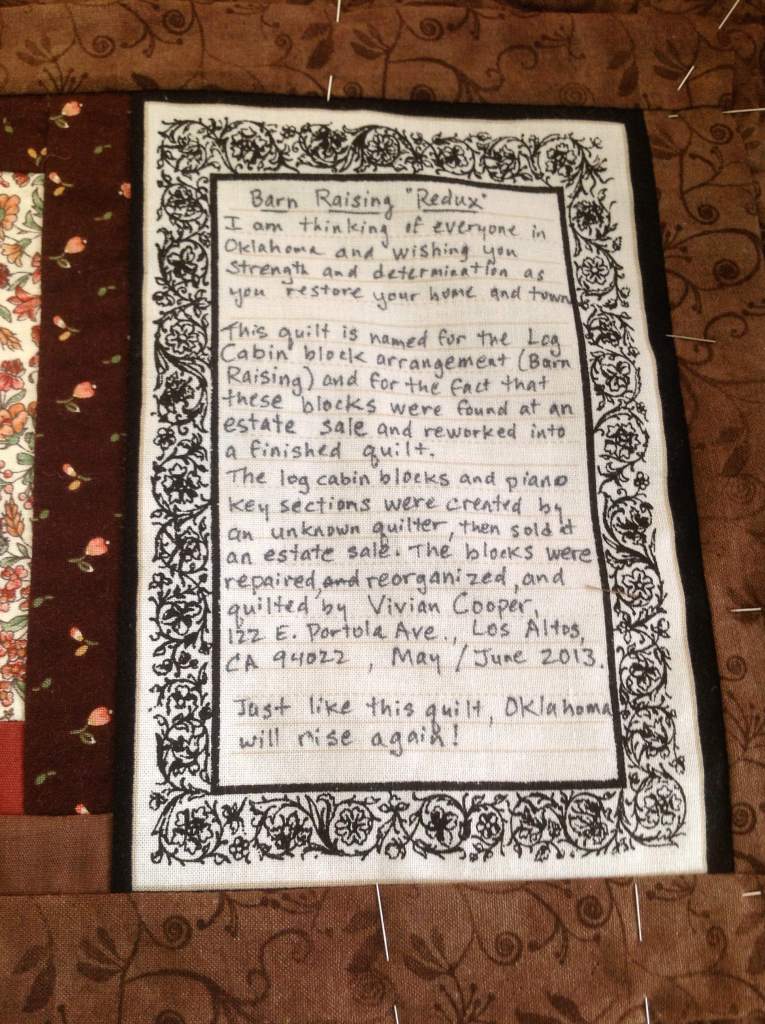 Barn Raising "Redux"
I am thinking of everyone in
Oklahoma and wishing you
strength and determination as
you restore your home and town
This quilt is named for the Log
Cabin block arrangement (Barn
Raising) and for the fact that
these blocks were found at an
estate sale and reworked into
a finished quilt.
The log cabin blocks and piano
key sections were created by
an unknown quilter, then sold at
an estate sale. The blocks were
repaired, and reorganized, and
quilted by Vivian Cooper,
122 E. Portola Ave., Los Altos,
CA 94022, May/June 2013.
Just like this quilt, Oklahoma
will rise again!